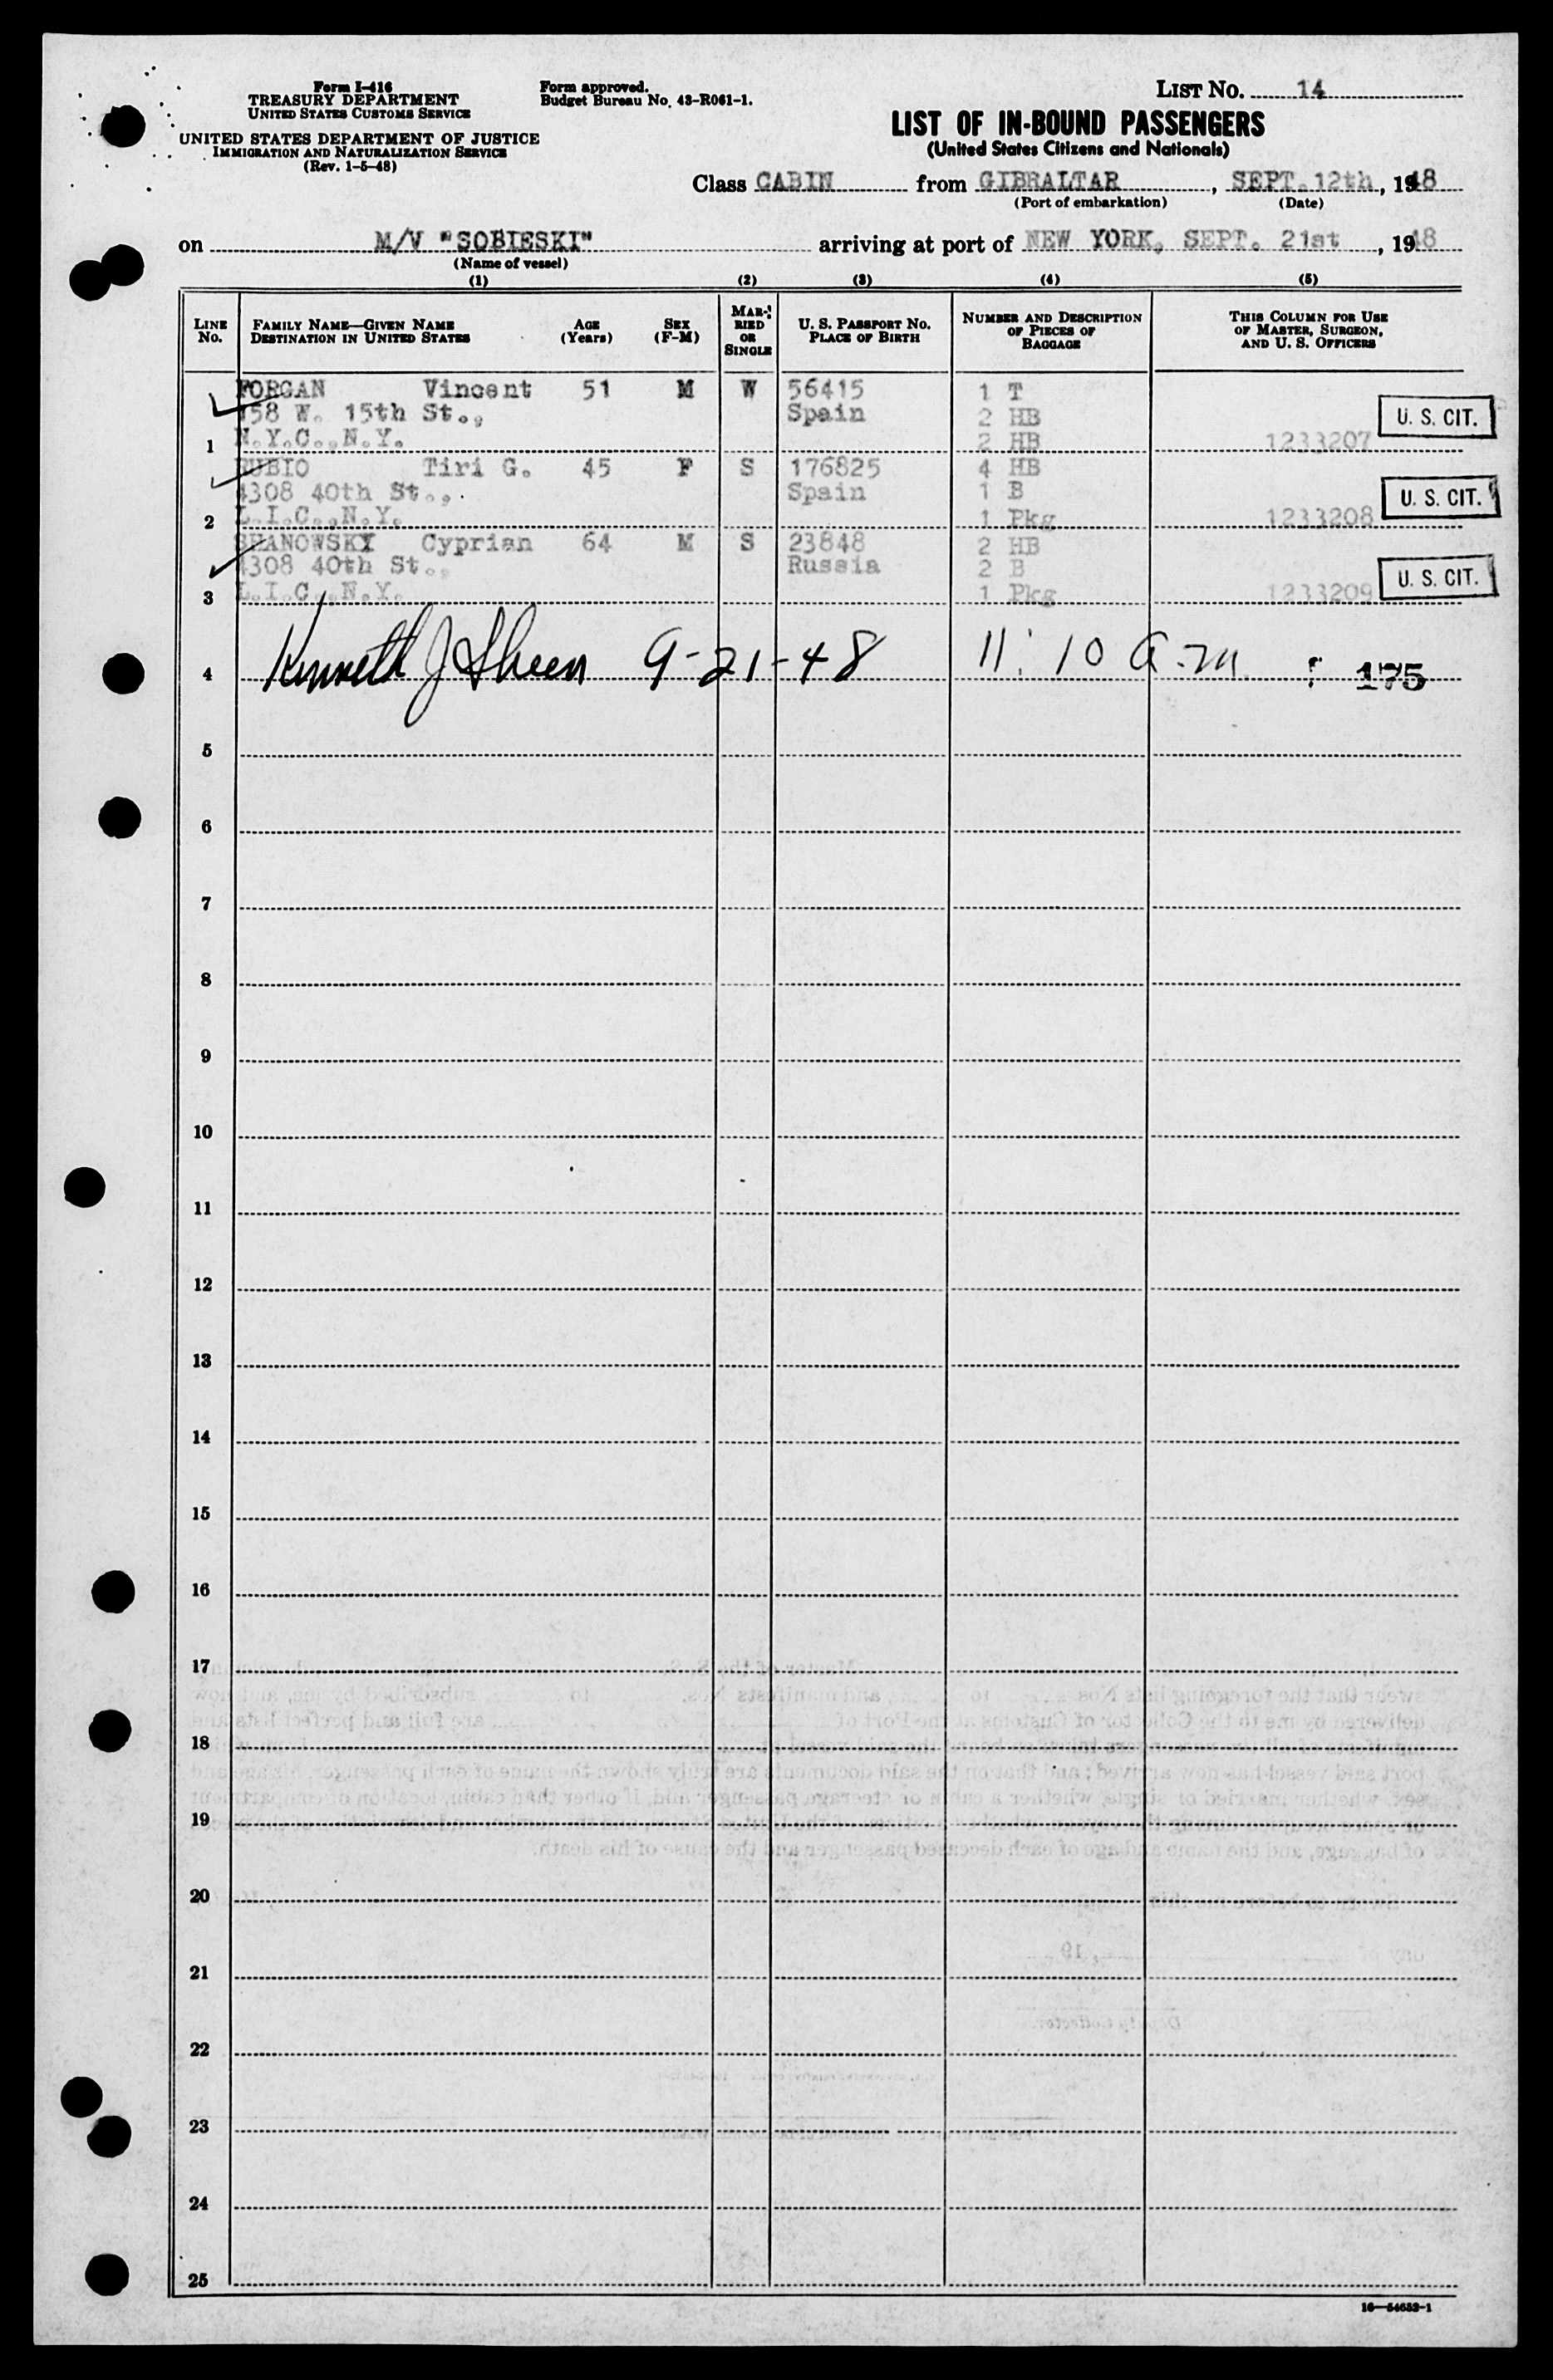 Form I-416
TREASURY DEPARTMENT
UNITED STATES CUSTOMS SERVICE
UNITED STATES DEPARTMENT OF JUSTICE
IMMIGRATION AND NATURALIZATION SERVICE
(Rev. 1-5-48)
Form approved.
Budget Bureau No. 43-R061-1.
LIST No. 14
LIST OF IN-BOUND PASSENGERS
(United States Citizens and Nationals)
Class CABIN from GIBRALTAR, SEPT. 12th, 1948
(Port of embarkation) (Date)
on M/V "SOBIESKI" arriving at port of NEW YORK, SEPT. 21st, 1948
(Name of vessel)
(1) (2) (3) (4) (5)
LINE No. FAMILY NAME—GIVEN NAME DESTINATION IN UNITED STATES AGE (Years) SEX (F-M) MARRIED OR SINGLE U. S. PASSPORT No. PLACE OF BIRTH NUMBER AND DESCRIPTION OF PIECES OF BAGGAGE THIS COLUMN FOR USE OF MASTER, SURGEON, AND U. S. OFFICERS
Vincent 51 M W 56415 1 T
W. 15th St., Spain 2 HB U. S. CIT.
1 N.Y.C.,N.Y. 2 HB 1233207
RUBIO Tiri G. 45 F S 176825 4 HB
4308 40th St., Spain 1 B U. S. CIT.
2 L.I.C.,N.Y. 1 Pkg 1233208
Cyprian 64 M S 23848 2 HB
4308 40th St., Russia 2 B U. S. CIT.
3 L.I.C.,N.Y. 1 Pkg 1233209
4 Kenneth J Sheen 9-21-48 11:10 a.m. 175
5
6
7
8
9
10
11
12
13
14
15
16
17
18
19
20
21
22
23
24
25
16—54652-1